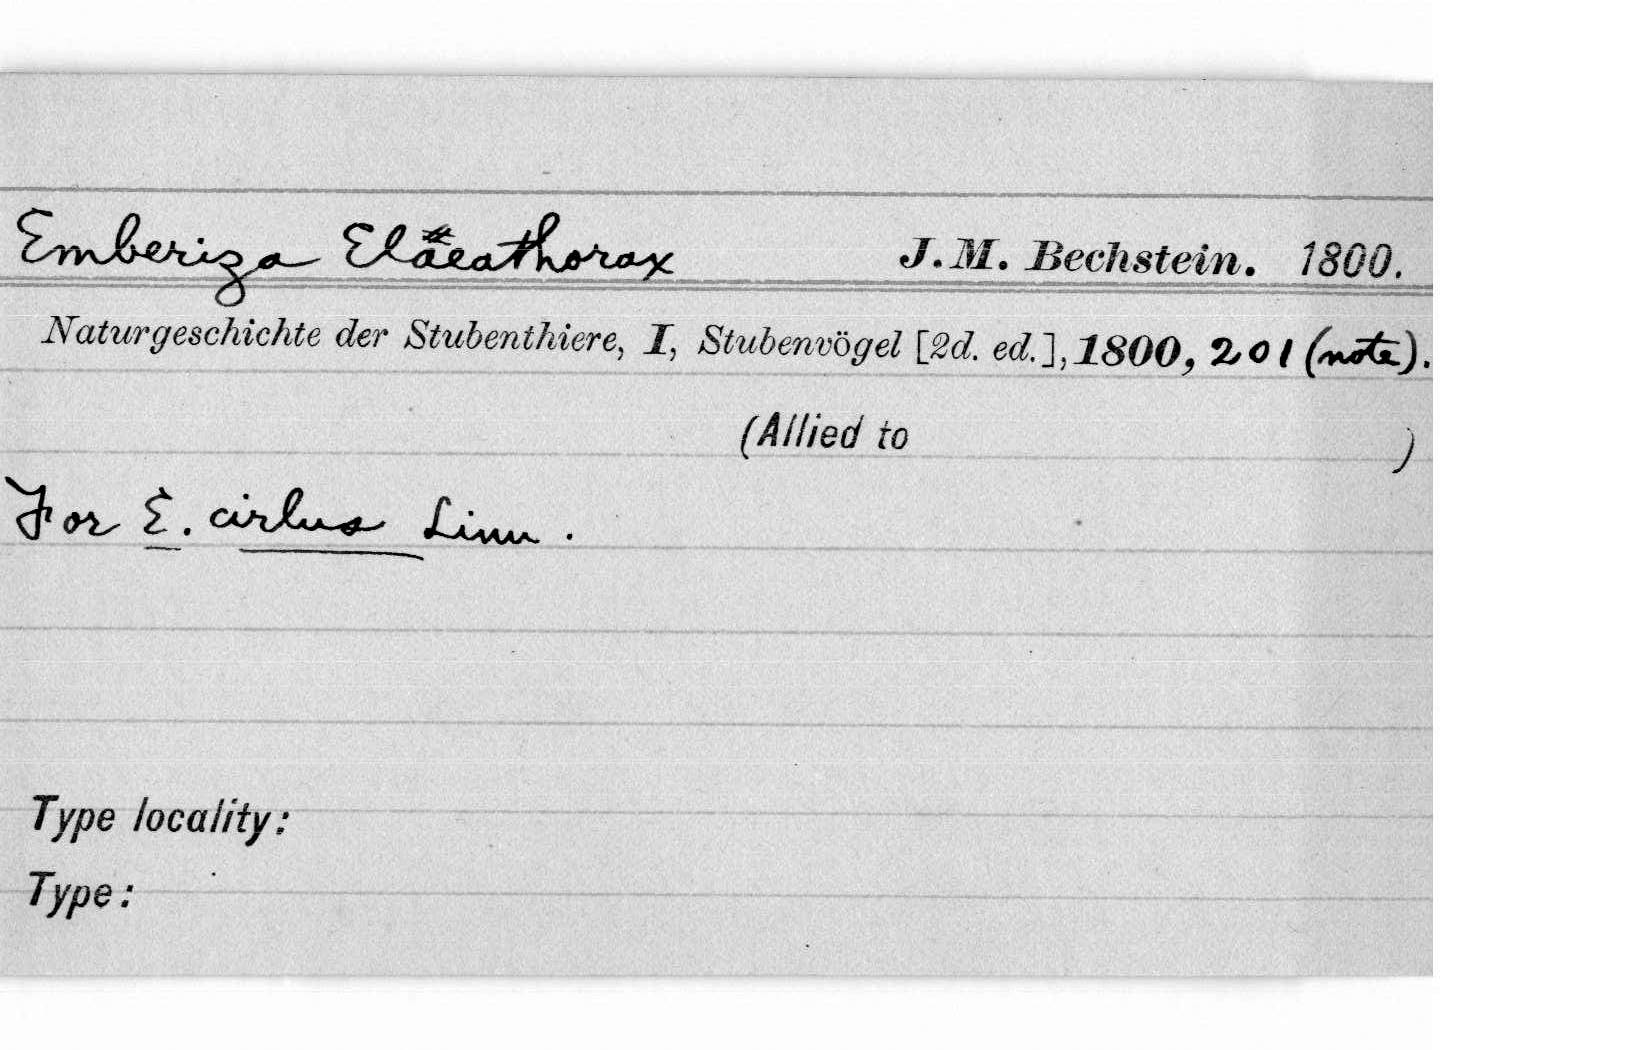 Emberiza Eläeathorax J. M. Bechstein. 1800.
Naturgeschichte der Stubenthiere, I, Stubenvögel [2d. ed.], 1800, 201 (note).
(Allied to )
For E. cirlus Linn.
Type locality:
Type: